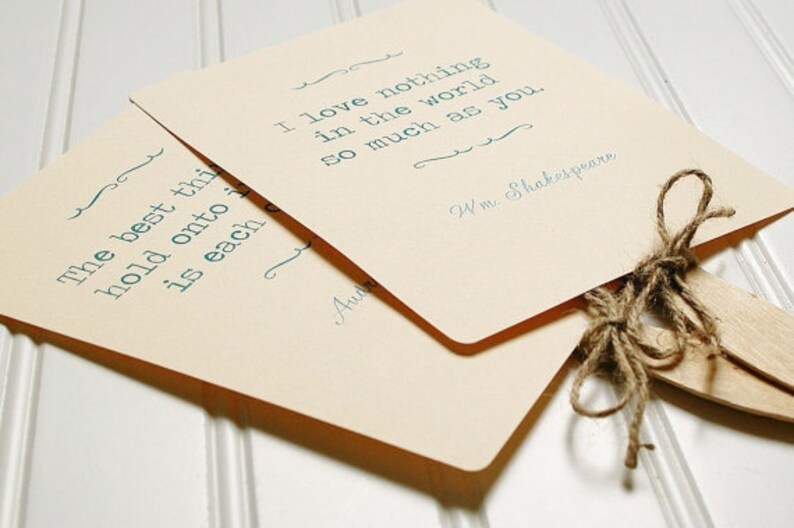 I love nothing
in the world
so much as you.
Wm. Shakespeare
The best thi
hold onto i
is each
Aud